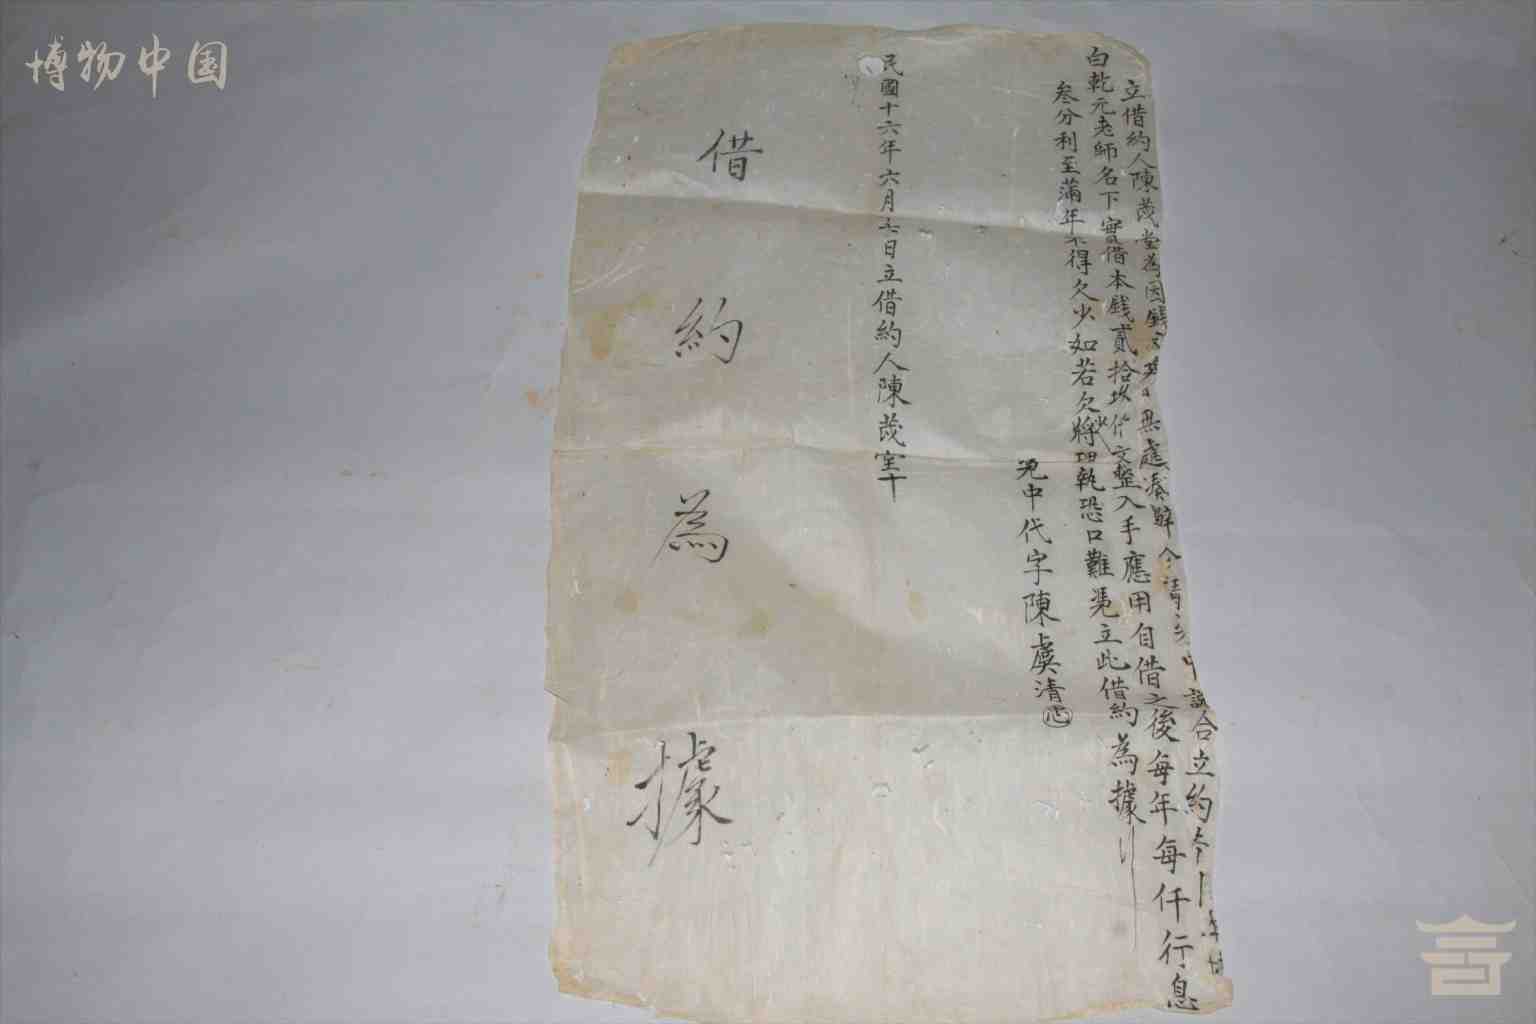 博物中国
立借約人陳茂堂為因錢 無處湊辦今請 中說合立約今
白乾元老師名下實借本錢貳拾 仟文整入手應用自借之後每年每仟行息
叁分利至滿年不得欠少如若欠少將 執恐口難凴立此借約為據
凴中代字陳虞清
民國十六年六月七日立借約人陳茂堂十
借約為據